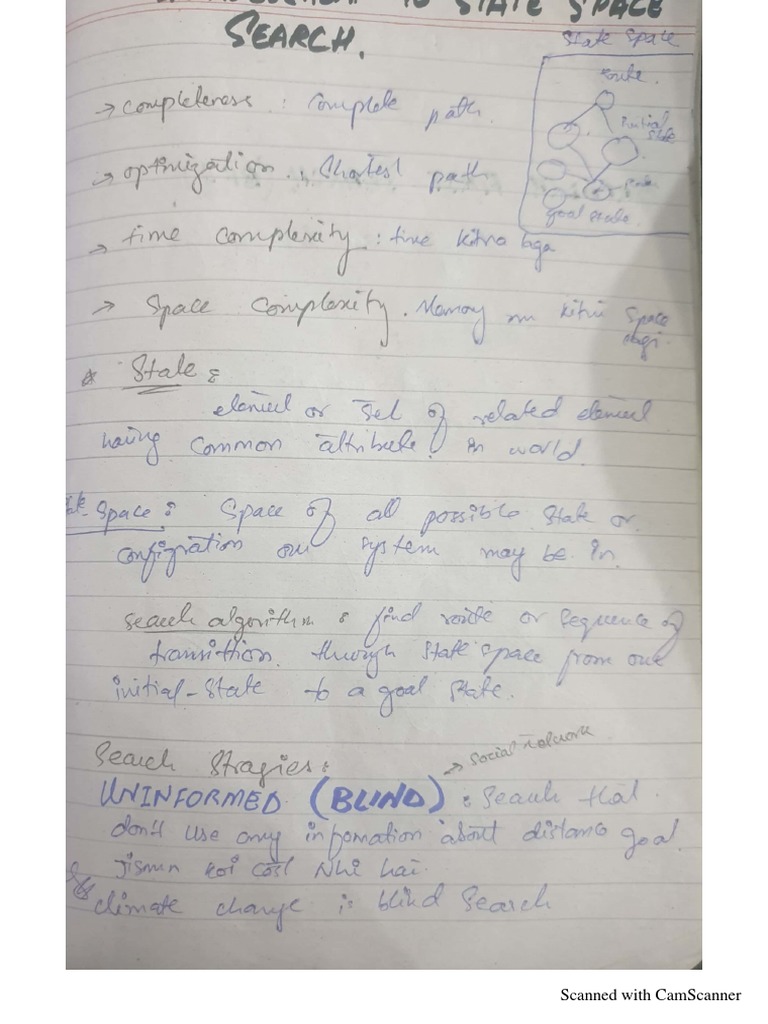 TO STATE SPACE
SEARCH.
State Space
route.
Initial
State
goal state.
→ completeness : complete path.
→ optimization : shortest path
→ time complexity : time kitna lga
→ Space Complexity. Memory mn kitni Space
* State :
element or set of related element
having common attribute in world.
Space : Space of all possible State or
configration our system may be in.
search algorithm : find route or sequence of
transithion. through state space from our
initial-state to a goal state.
Search Stragies :
→ Social network
UNINFORMED (BLIND) : Search that
don't use any infomation about distance goal.
Jismn koi cost Nhi hai.
climate change is blind Search
Scanned with CamScanner